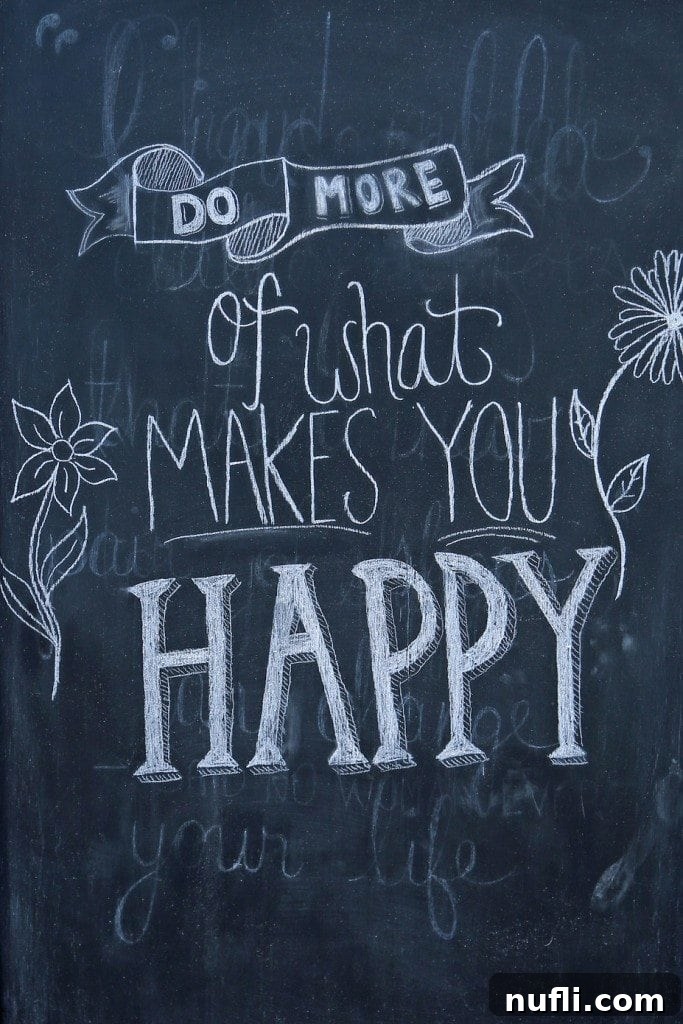 DO MORE
of what
MAKES YOU
HAPPY
your life
nufli.com